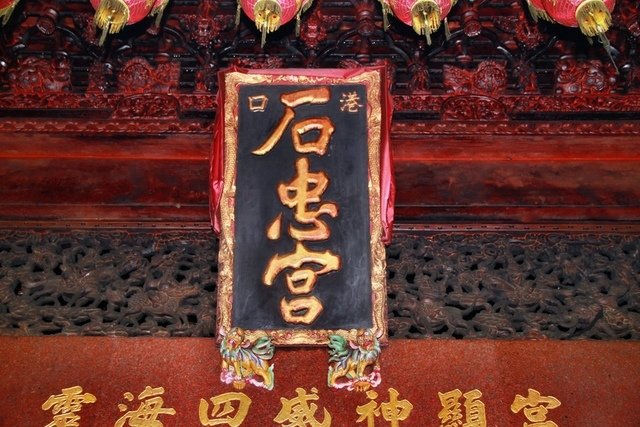 港口
石忠宮
宮顯神威四海靈